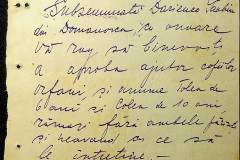 Subsemnata Darienco
din Domanovca, cu onoare
vă rog să binevoiți
a aproba ajutor copiilor
orfani și anume Tolea de
6 ani și Colea de 10 ani
rămași fără ambele
și neavand cu ce să
le întreține -